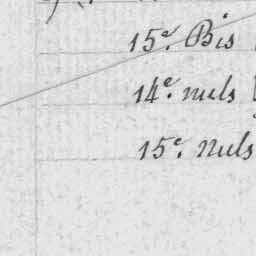 15e. Bis
14e. nuls
15e. Nuls